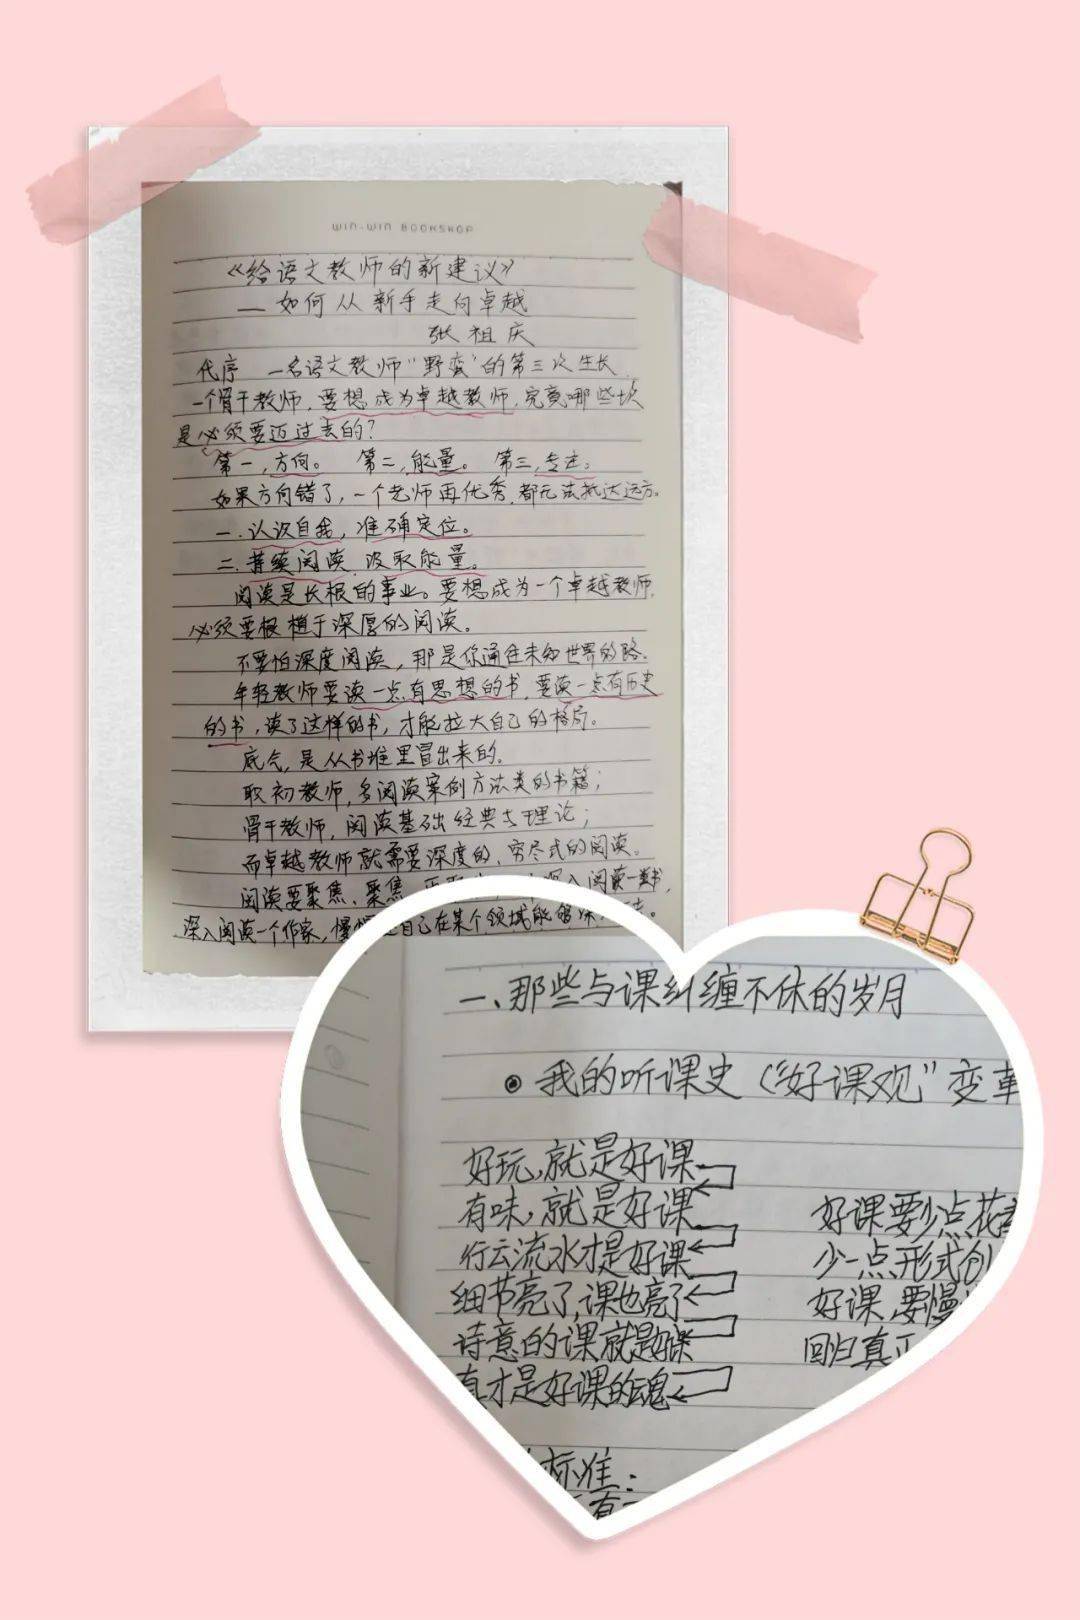 WIN-WIN BOOKSHOP
《给语文教师的新建议》
—如何从新手走向卓越
张祖庆
代序 一名语文教师“野蛮”的第三次生长
一个骨干教师,要想成为卓越教师,究竟哪些坎
是必须要迈过去的?
第一,方向。 第二,能量。 第三,专注。
如果方向错了,一个老师再优秀,都无法抵达远方。
一.认识自我,准确定位。
二.持续阅读,汲取能量。
阅读是长根的事业。要想成为一个卓越教师,
必须要根植于深厚的阅读。
不要怕深度阅读,那是你通往未知世界的路。
年轻教师要读一点有思想的书,要读一点有历史
的书,读了这样的书,才能拉大自己的格局。
底气,是从书堆里冒出来的。
职初教师,多阅读案例方法类的书籍;
骨干教师,阅读基础经典与理论;
而卓越教师就需要深度的、穷尽式的阅读。
阅读要聚焦、聚焦、深入阅读一类书,
深入阅读一个作家,慢慢 自己在某个领域能够
一、那些与课纠缠不休的岁月
我的听课史(“好课观”变革
好玩,就是好课
有味,就是好课
行云流水才是好课
细节亮了,课也亮了
诗意的课就是好课
真才是好课的魂
好课要少点花
少一点形式创
好课,要慢
回归真正
标准:
有